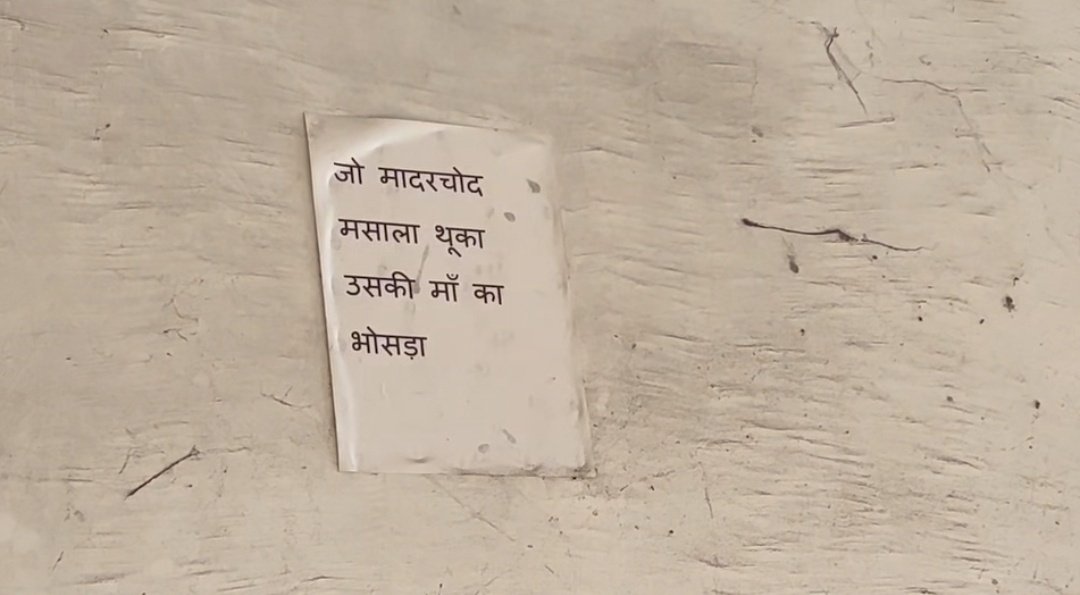 जो मादरचोद
मसाला थूका
उसकी माँ का
भोसड़ा